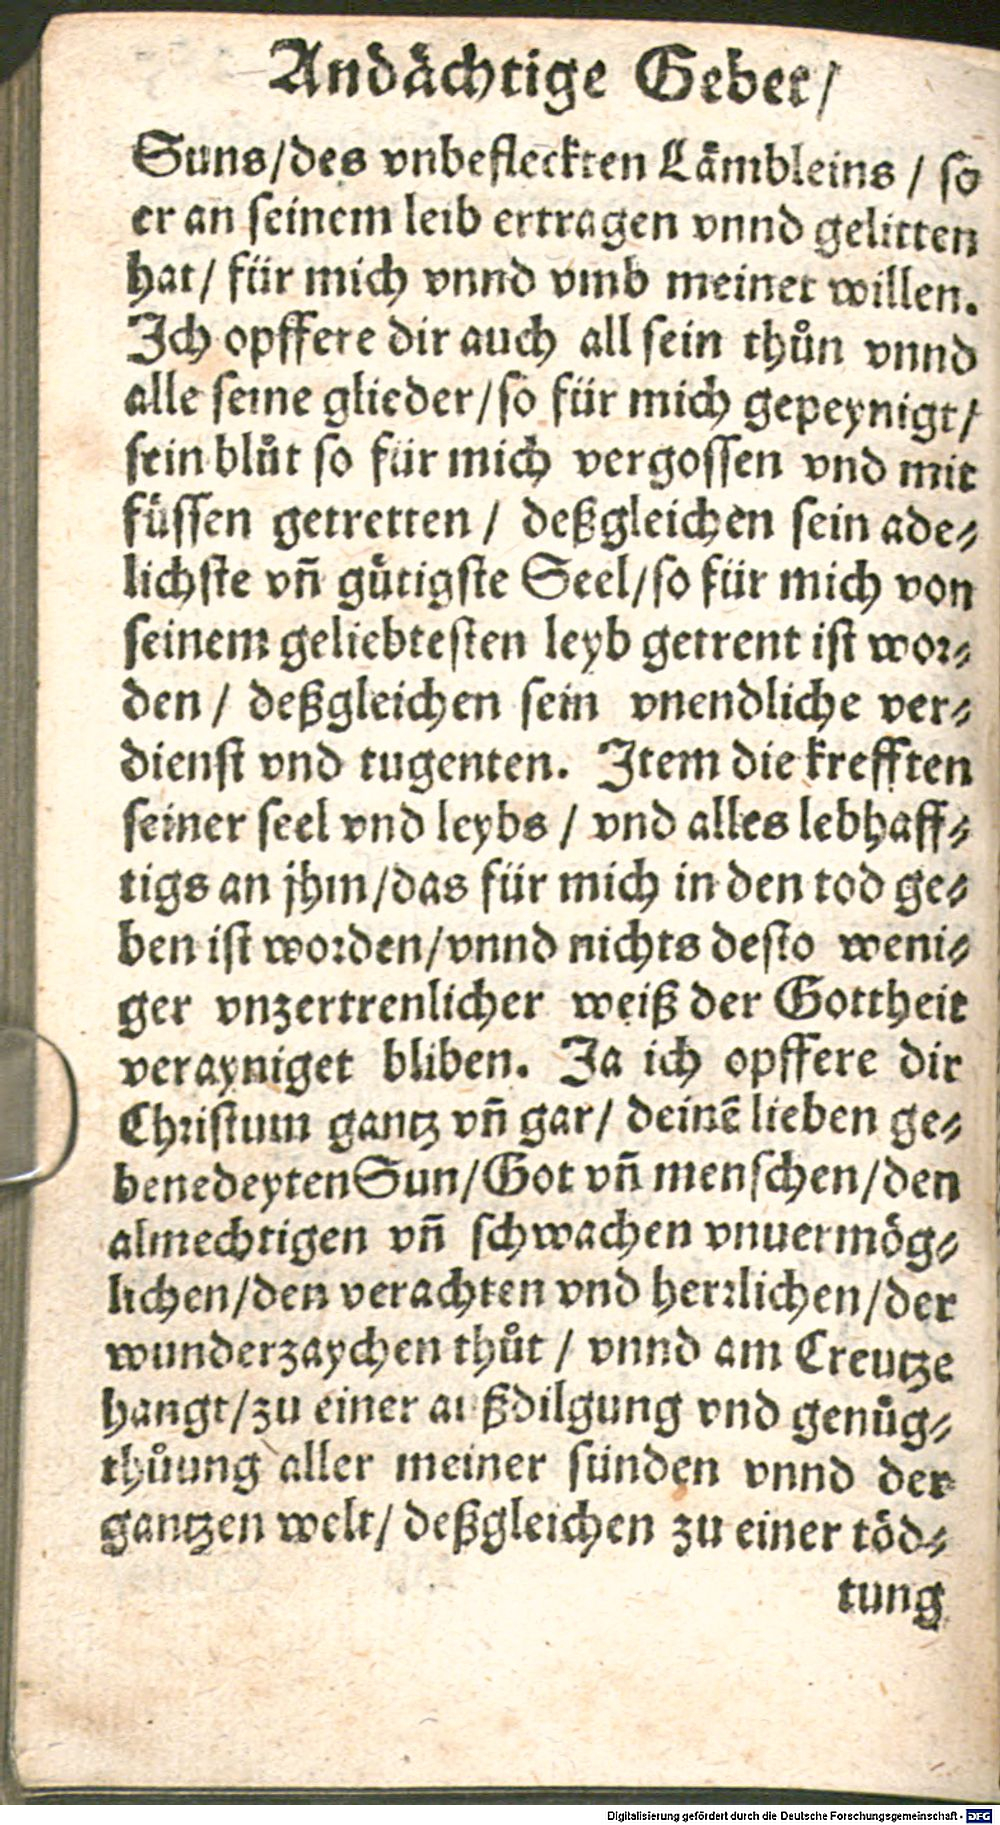 Andächtige Gebet/
Suns/des vnbefleckten Lämbleins / so
er an seinem leib ertragen vnnd gelitten
hat/ für mich vnnd vmb meinet willen.
Ich opffere dir auch all sein thůn vnnd
alle seine glieder/so für mich gepeynigt/
sein blůt so für mich vergossen vnd mit
füssen getretten / deßgleichen sein ade⸗
lichste vñ gütigste Seel/so für mich von
seinem geliebtesten leyb getrent ist wor⸗
den / deßgleichen sein vnendliche ver⸗
dienst vnd tugenten. Item die krefften
seiner seel vnd leybs / vnd alles lebhaff⸗
tigs an jhm/das für mich in den tod ge⸗
ben ist worden/vnnd nichts desto weni⸗
ger vnzertrenlicher weiß der Gottheit
verayniget bliben. Ja ich opffere dir
Christum gantz vñ gar/ deinē lieben ge⸗
benedeyten Sun/Got vñ menschen/den
almechtigen vñ schwachen vnuermög⸗
lichen/den verachten vnd herrlichen/der
wunderzaychen thůt / vnnd am Creutze
hangt/zu einer außdilgung vnd genůg⸗
thůung aller meiner sünden vnnd der
gantzen welt/ deßgleichen zu einer töd⸗
tung
Digitalisierung gefördert durch die Deutsche Forschungsgemeinschaft - DFG